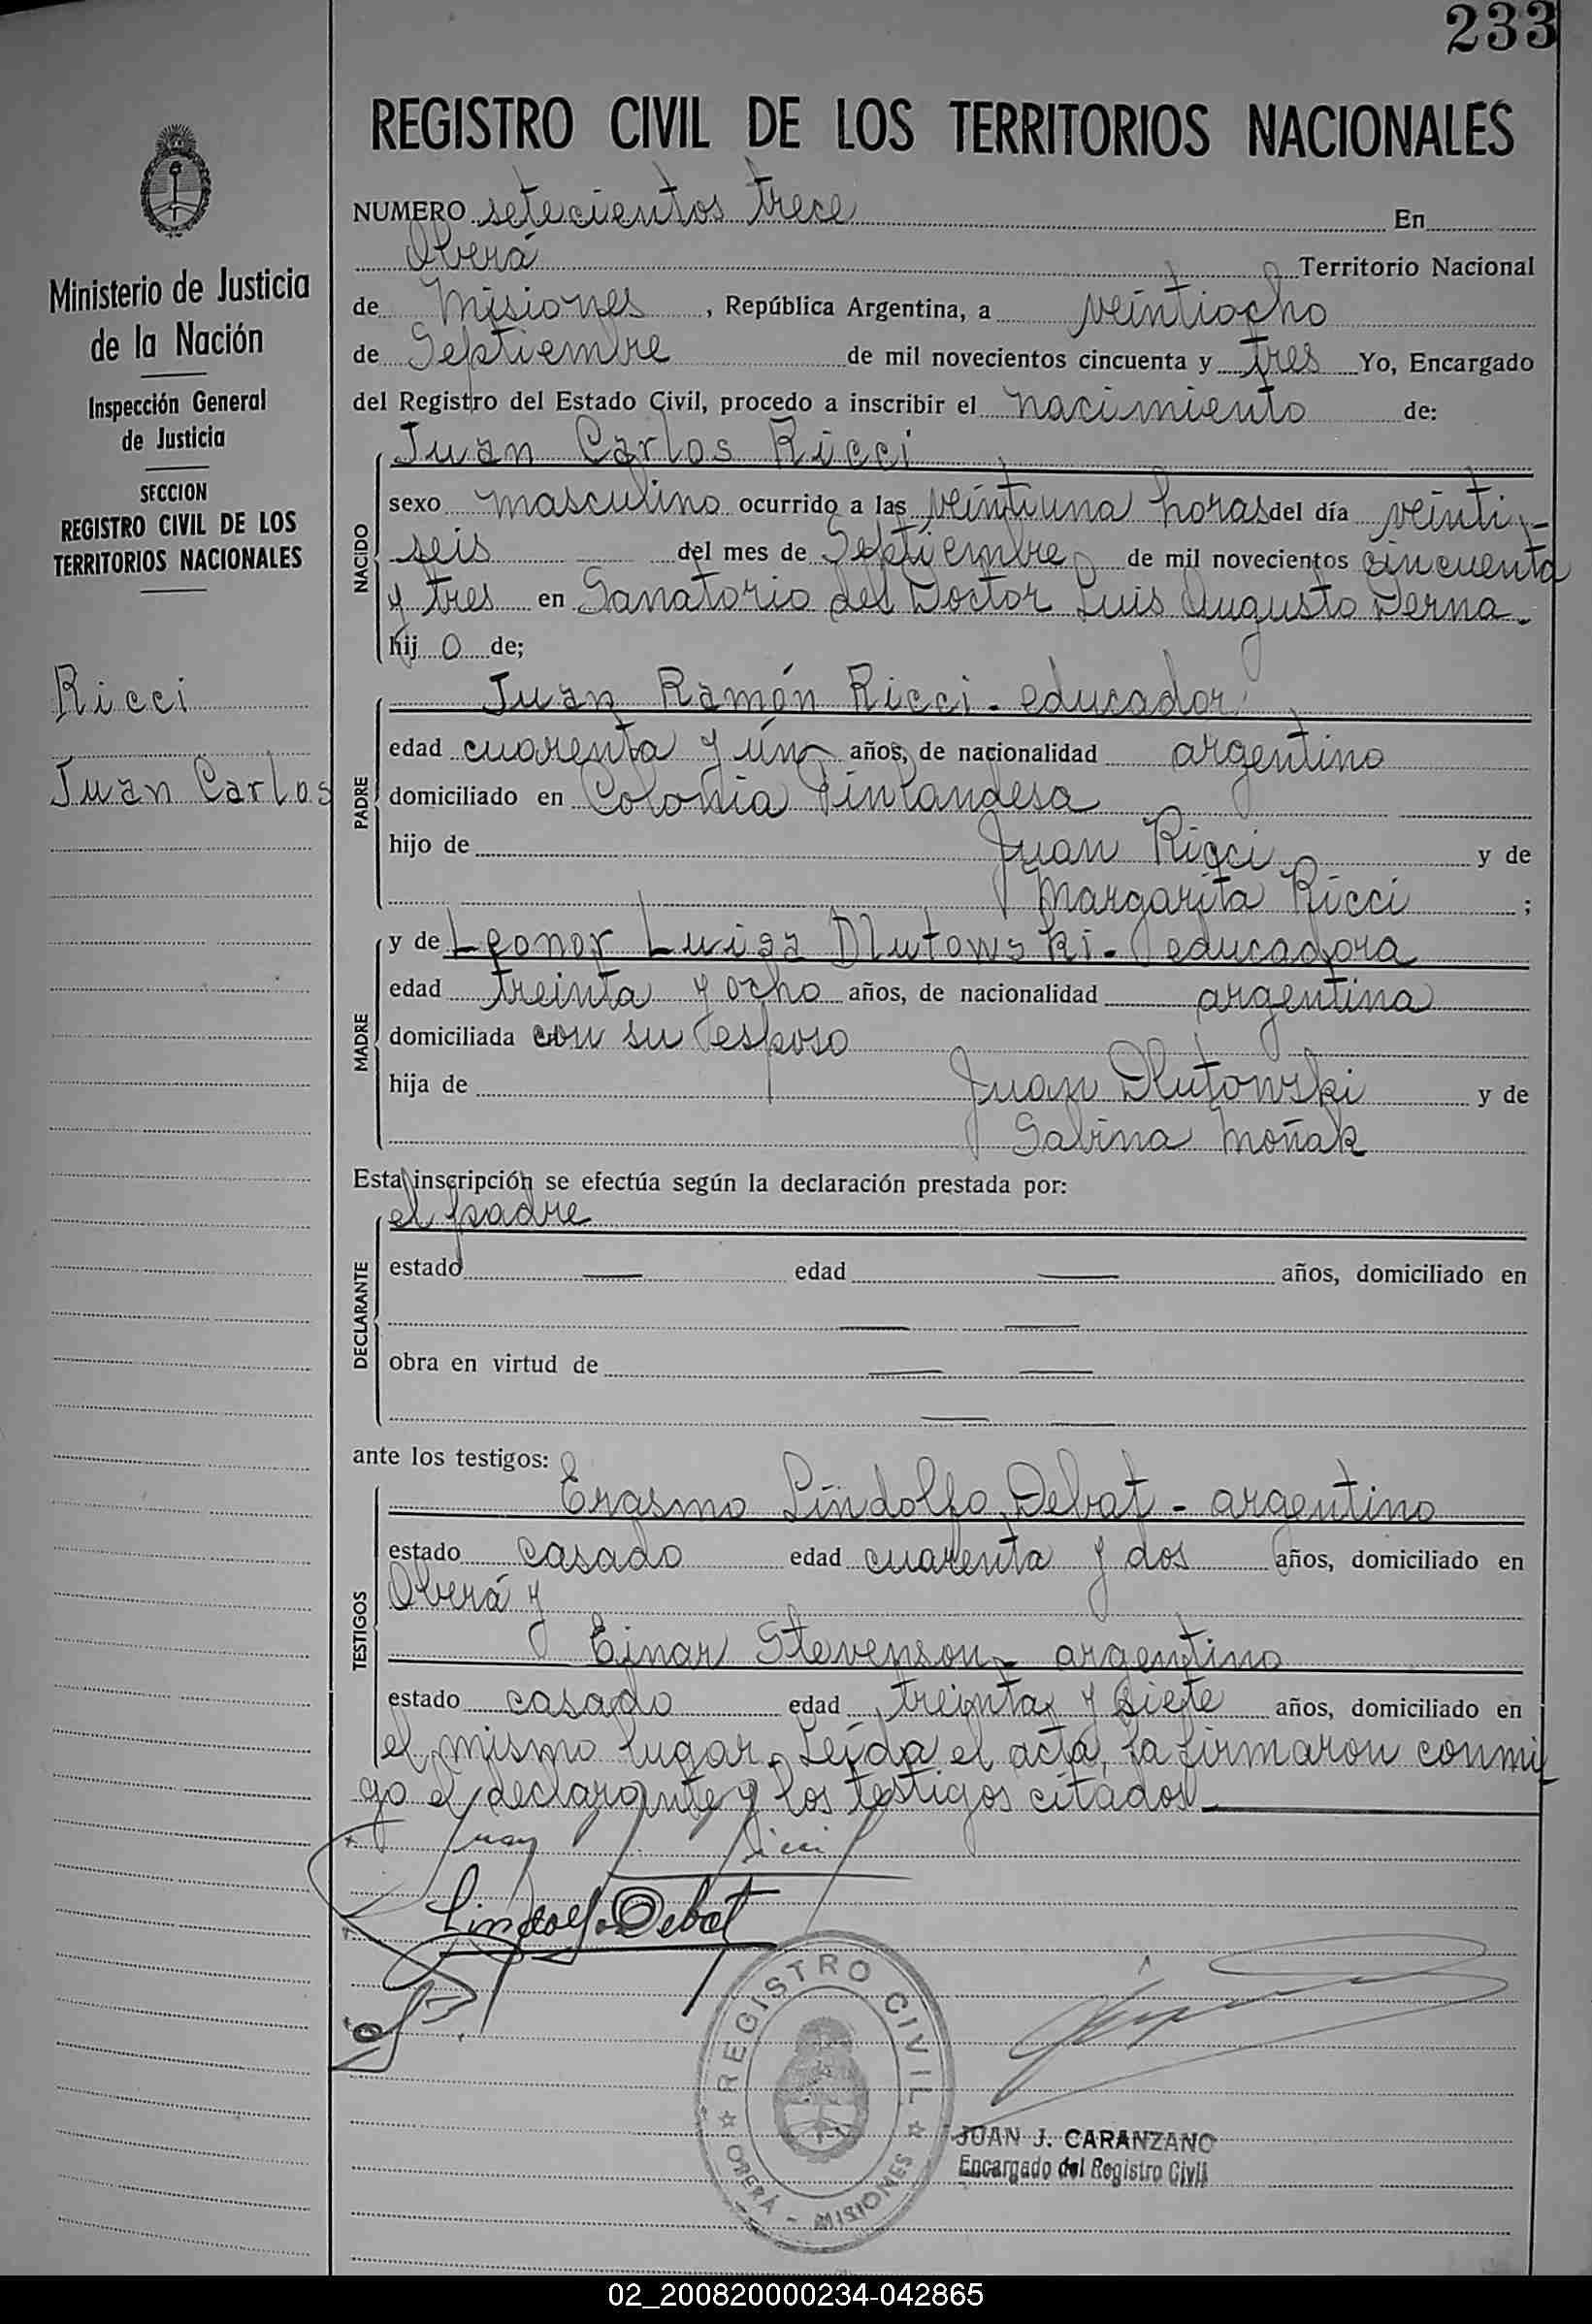 233
REGISTRO CIVIL DE LOS TERRITORIOS NACIONALES
NUMERO setecientos trece En
Oberá Territorio Nacional
de Misiones, República Argentina, a veintiocho
de Septiembre de mil novecientos cincuenta y tres Yo, Encargado
del Registro del Estado Civil, procedo a inscribir el nacimiento de:
Juan Carlos Ricci
sexo masculino ocurrido a las veintiuna horas del día veinti-
seis del mes de Septiembre de mil novecientos cincuenta
y tres en Sanatorio del Doctor Luis Augusto Derna.
hijo de;
NACIDO
Juan Ramón Ricci - educador
edad cuarenta y ún años, de nacionalidad argentino
domiciliado en Colonia Finlandesa
hijo de Juan Ricci y de
Margarita Ricci ;
PADRE
y de Leonor Luisa Dlutowski - educadora
edad treinta y ocho años, de nacionalidad argentina
domiciliada con su esposo
hija de Juan Dlutowski y de
Sabina Moñak
MADRE
Esta inscripción se efectúa según la declaración prestada por:
el padre
estado — edad — años, domiciliado en
— —
obra en virtud de — —
— —
DECLARANTE
ante los testigos:
Erasmo Lindolfo Debat - argentino
estado casado edad cuarenta y dos años, domiciliado en
Oberá y
Einar Stevenson - argentino
estado casado edad treinta y siete años, domiciliado en
el mismo lugar. Leída el acta, la firmaron conmi
go el declarante y los testigos citados.
TESTIGOS
Juan Ricci
Lindolfo Debat
REGISTRO CIVIL
OBERÁ - MISIONES
JUAN J. CARANZANO
Encargado del Registro Civil
Ministerio de Justicia
de la Nación
Inspección General
de Justicia
SECCION
REGISTRO CIVIL DE LOS
TERRITORIOS NACIONALES
Ricci
Juan Carlos
02_200820000234-042865